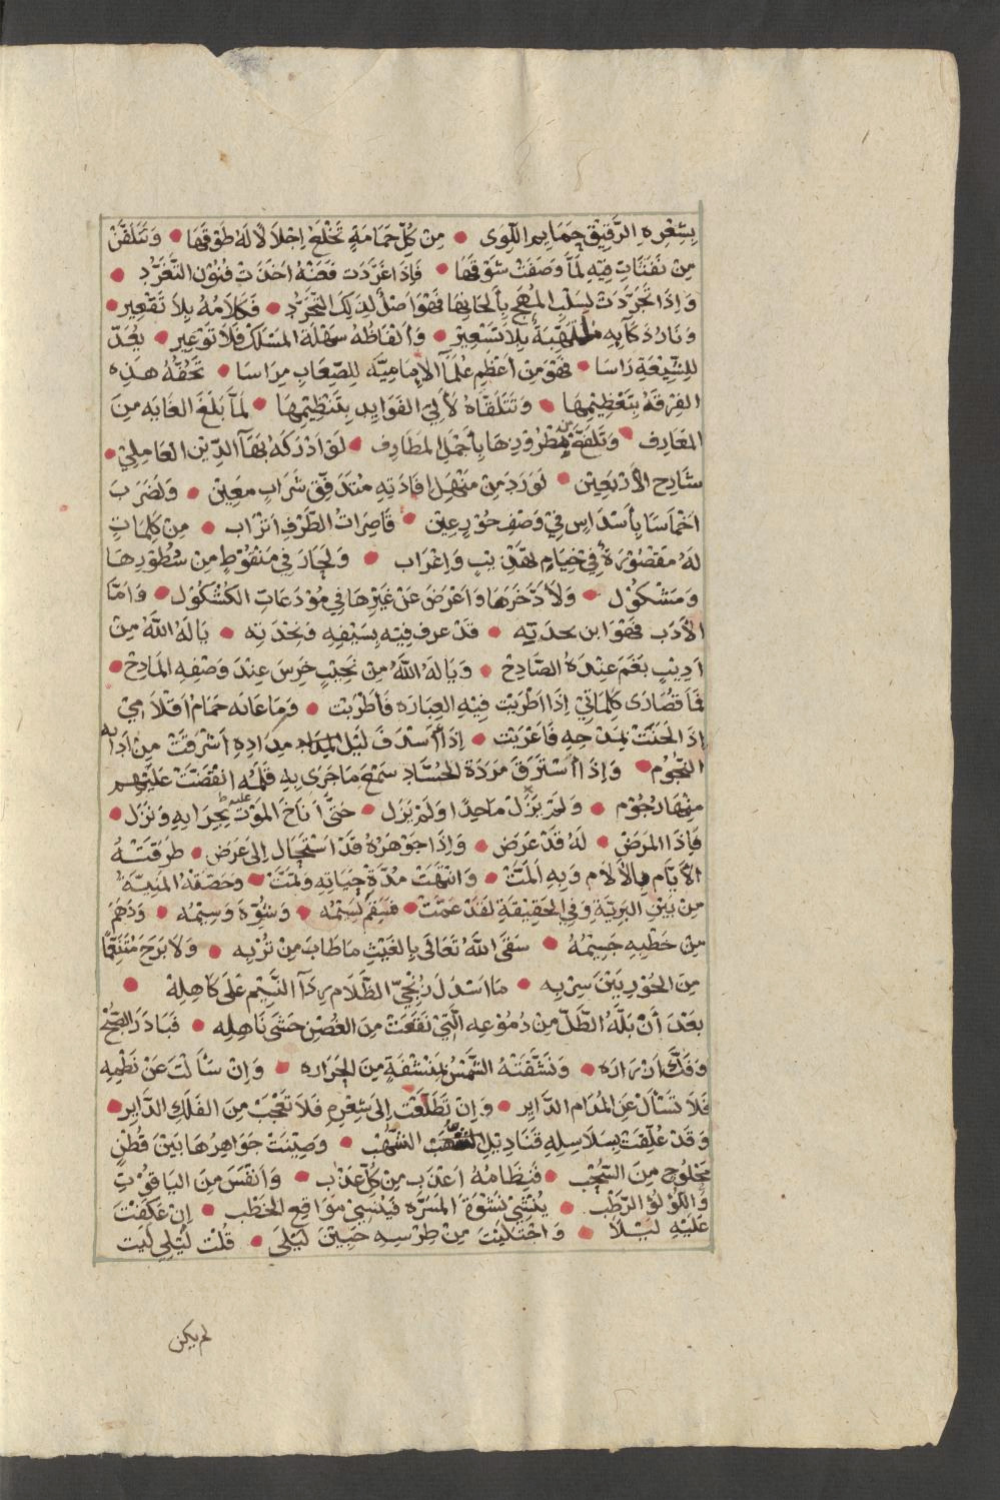 بِشِعْرِهِ الرَّقِيْقِ حَمَايِم اللِّوَى • مِنْ كُلِّ حَمَامَةٍ تَخْلَعُ اِجْلَالًا لَهُ طَوْقَهَا • وَتَتَلَقَّنُ
مِنْ نَفَثَاتِ فِيْهِ لَمَّا وَصَفَتْ شَوْقَهَا • فَإِذَا غَرَّدَت فَعَنْهُ اَخَذَتْ فُنُوْنَ التَّغَرُّدِ •
وَاِذَا تَجَرَّدَتْ لِسَلْبِ المُهَجِ بِأَلْحَانِهَا فَهُوَ اَصْلٌ لِذٰلِكَ التَّجَرُّدِ • فَكَلَامُهُ بِلَا تَقْعِير •
وَنَارُ ذَكَآيِهِ مُلْتَهِبَةٌ بِلَا تَسْعِيْر • وَاَلْفَاظُهُ سَهْلَةُ المَسْلَك فَلَا تَوْعِير • يُعَدّ
لِلشِّيْعَةِ رَاسَا • فَهُوَ مِنْ اَعْظَمِ عُلَمَآ الاِمَامِيَّة لِلصِّعَابِ مِرَاسَا • تَحُفُّهُ هَذِه
الفِرْقَةُ بِتَعْظِيْمِهَا • وَتَتَلَقَّاهُ لَآلِيْ الفَوَايِدِ بِتَنْظِيْمِهَا • لَمَّا بَلَغَ الغَايَه مِنَ
المَعَارِف • وَتَلَفَّعَ مِنْ طُرُوْزِهَا بِأَجْمَلِ المَطَارِف • لَوْ اَدْرَكَهُ بَهَآ الدِّيْن العَامِلِيْ •
شَارِح الاَرْبَعِيْن • لَوَرَدَ مِنْ مَنْهَلِ اِفَادَتِهِ مُتَدَفِّق شَرَابٍ مَعِيْن • وَلَضَرَبَ
اَخْمَاسَا بِأَسْدَاسٍ فِيْ وَصْفِ حُوْرٍ عِيْن • قَاصِرَاتُ الطَّرْفِ اَتْرَاب • مِنْ كَلِمَاتٍ
لَهُ مَقْصُوْرَةٌ فِيْ خِيَامِ تَهْذِيْبٍ وَاِغْرَاب • وَلَحَارَ فِيْ مَنْقُوْطٍ مِنْ سُطُوْرِهَا
وَمَشْكُوْل • وَلَادَّخَرَهَا وَاَعْرَضَ عَنْ غَيْرِهَا فِيْ مُوْدَعَاتِ الكَشْكُوْل • وَاَمَّا
الاَدَب فَهُوَ ابن بجدَتِه • قَدْ عرف فِيْهِ بِسَيْفِهِ وَنَجْدَتِه • يَا لَهُ اللّٰهُ مِنْ
اَدِيْبٍ بَغَمَ عِنْدَهُ الصَّادِحْ • وَيَا لَهُ اللّٰهُ مِنْ نَجِيْبٍ خَرِسَ عِنْدَ وَصْفِهِ المَادِحْ •
فَأَقْصَارَى كَلِمَاتِيْ إِذَا اَطْرَبَت فِيْهِ العِبَارَه فَأَطْرَبْت • وَمَا عَابَه حَمَامُ اَقْلَامِيْ
إِذَا لَحَنَتْ بِمَدْحِهِ فَاَعْرَبَت • إِذَا أَسْدَفَ لَيْلُ مِدَادِهِ اَشْرَقَتْ مِنْ آدَابِه
النُّجُوْم • وَاِذَا اسْتَرَقَ مَرَدَةُ الحُسَّادِ سَمْعَ مَا جَرَى بِهِ قَلَمُه انْقَضَتْ عَلَيْهِم
مِنْهَا رُجُوْم • وَلَمْ يَزَلْ مَاجِدًا وَلَمْ يَزَل • حَتَّى اَنَاخَ المَوْتُ عليه بِجِرَانِهِ وَنَزَل •
فَإِذَا المَرَضُ • لَهُ قَدْ عَرَض • وَاِذَا جَوْهَرُهُ قَدْ اسْتَحَال اِلى عَرَض • طَرَقَتْهُ
الاَيَّام بِالآلَام وَبِهِ اَلَمَّتْ • وَانْتَهَتْ مُدَّةُ حَيَاتِهِ وَتَمَّتْ • وَخَصَّتْهُ المَنِيَّة
مِنْ بَيْنِ البَرِيَّةِ وَفِي الحَقِيْقَةِ لَقَدْ عَمَّتْ • فَسَقُمَ نَسِيْمُه • وَشُوِّهَ وَسِيْمُه • وَدَهَمَ
مِنْ خَطْبِهِ جَسِيْمُهُ • سَقَى اللّٰهُ تَعَالَى بِالغَيْثِ مَا طَابَ مِنْ تُرْبِه • وَلَا بَرَحَ مُتَنَعِّمًا
مِنَ الحُوْرِ بَيْنَ سِرْبِه • مَا اسْدَلَ زِنْجِيّ الظَّلَام رِدَآ النَّسِيْم عَلَى كَاهِلِهْ •
بَعْدَ أَنْ بَلَّهُ الطَّلّ مِنْ دُمُوْعِهِ الَّتِيْ نَقَعَتْ مِنَ الغُصْنِ حَشَى نَاهِلِه • فَبَادَرَ الصُّبْحُ
وَفَكَّ اَزْرَارَه • وَنَشَّفَتْهُ الشَّمْسُ بِمِنْشَفَةٍ مِنَ الحَرَارَه • وَاِنْ سَأَلْتَ عَنْ نَظْمِهِ
فَلَا تَسْأَلْ عَنِ المُدَام الدَّايِر • وَاِنْ تَطَلَّعْتَ اِلَى شِعْرِهِ فَلَا تَعْجَبْ مِنَ الفَلَكِ الدَّايِر •
وَقَدْ عُلِّقَتْ بِسَلَاسِلِهِ قَنَادِيْلُ الشُّهُبْ • وَصِيْنَتْ جَوَاهِرُهَا بَيْنَ قُطْنٍ
مَحْلُوْجٍ مِنَ السُّحُبْ • فَنِظَامُهُ اَعْذَبُ مِنْ كُلِّ عَذْب • وَاَنْفَسُ مِنَ اليَاقُوْتِ
وَاللُّؤْلُؤِ الرَّطْب • يُنْشِيْ نَشْوَةَ المَسَرَّه فَيُنْسِيْ مَوَاقِعَ الخَطْب • اِنْ عَكَفْتَ
عَلَيْهِ لَيْلًا • وَاجْتَلَيْتَ مِنْ طِرْسِهِ جَبِيْنَ لَيْلَى • قُلْتَ لَيْلِي لَيْتَ
لم يكن